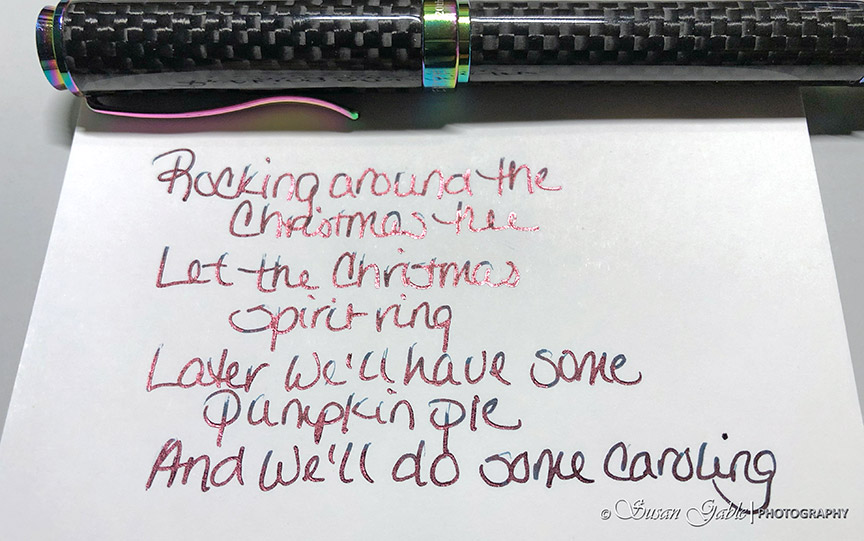 Rocking around the
Christmas tree
Let the Christmas
spirit ring
Later we'll have some
pumpkin pie
And we'll do some caroling
© Susan Gable | PHOTOGRAPHY